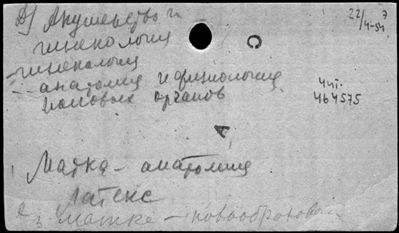 Д) Акушерство и
гинекология
- гинекология
- анатомия и физиология
половых органов
22/4-54
7
чит.
464575
Матка - анатомия
Латекс
матка - новообразован